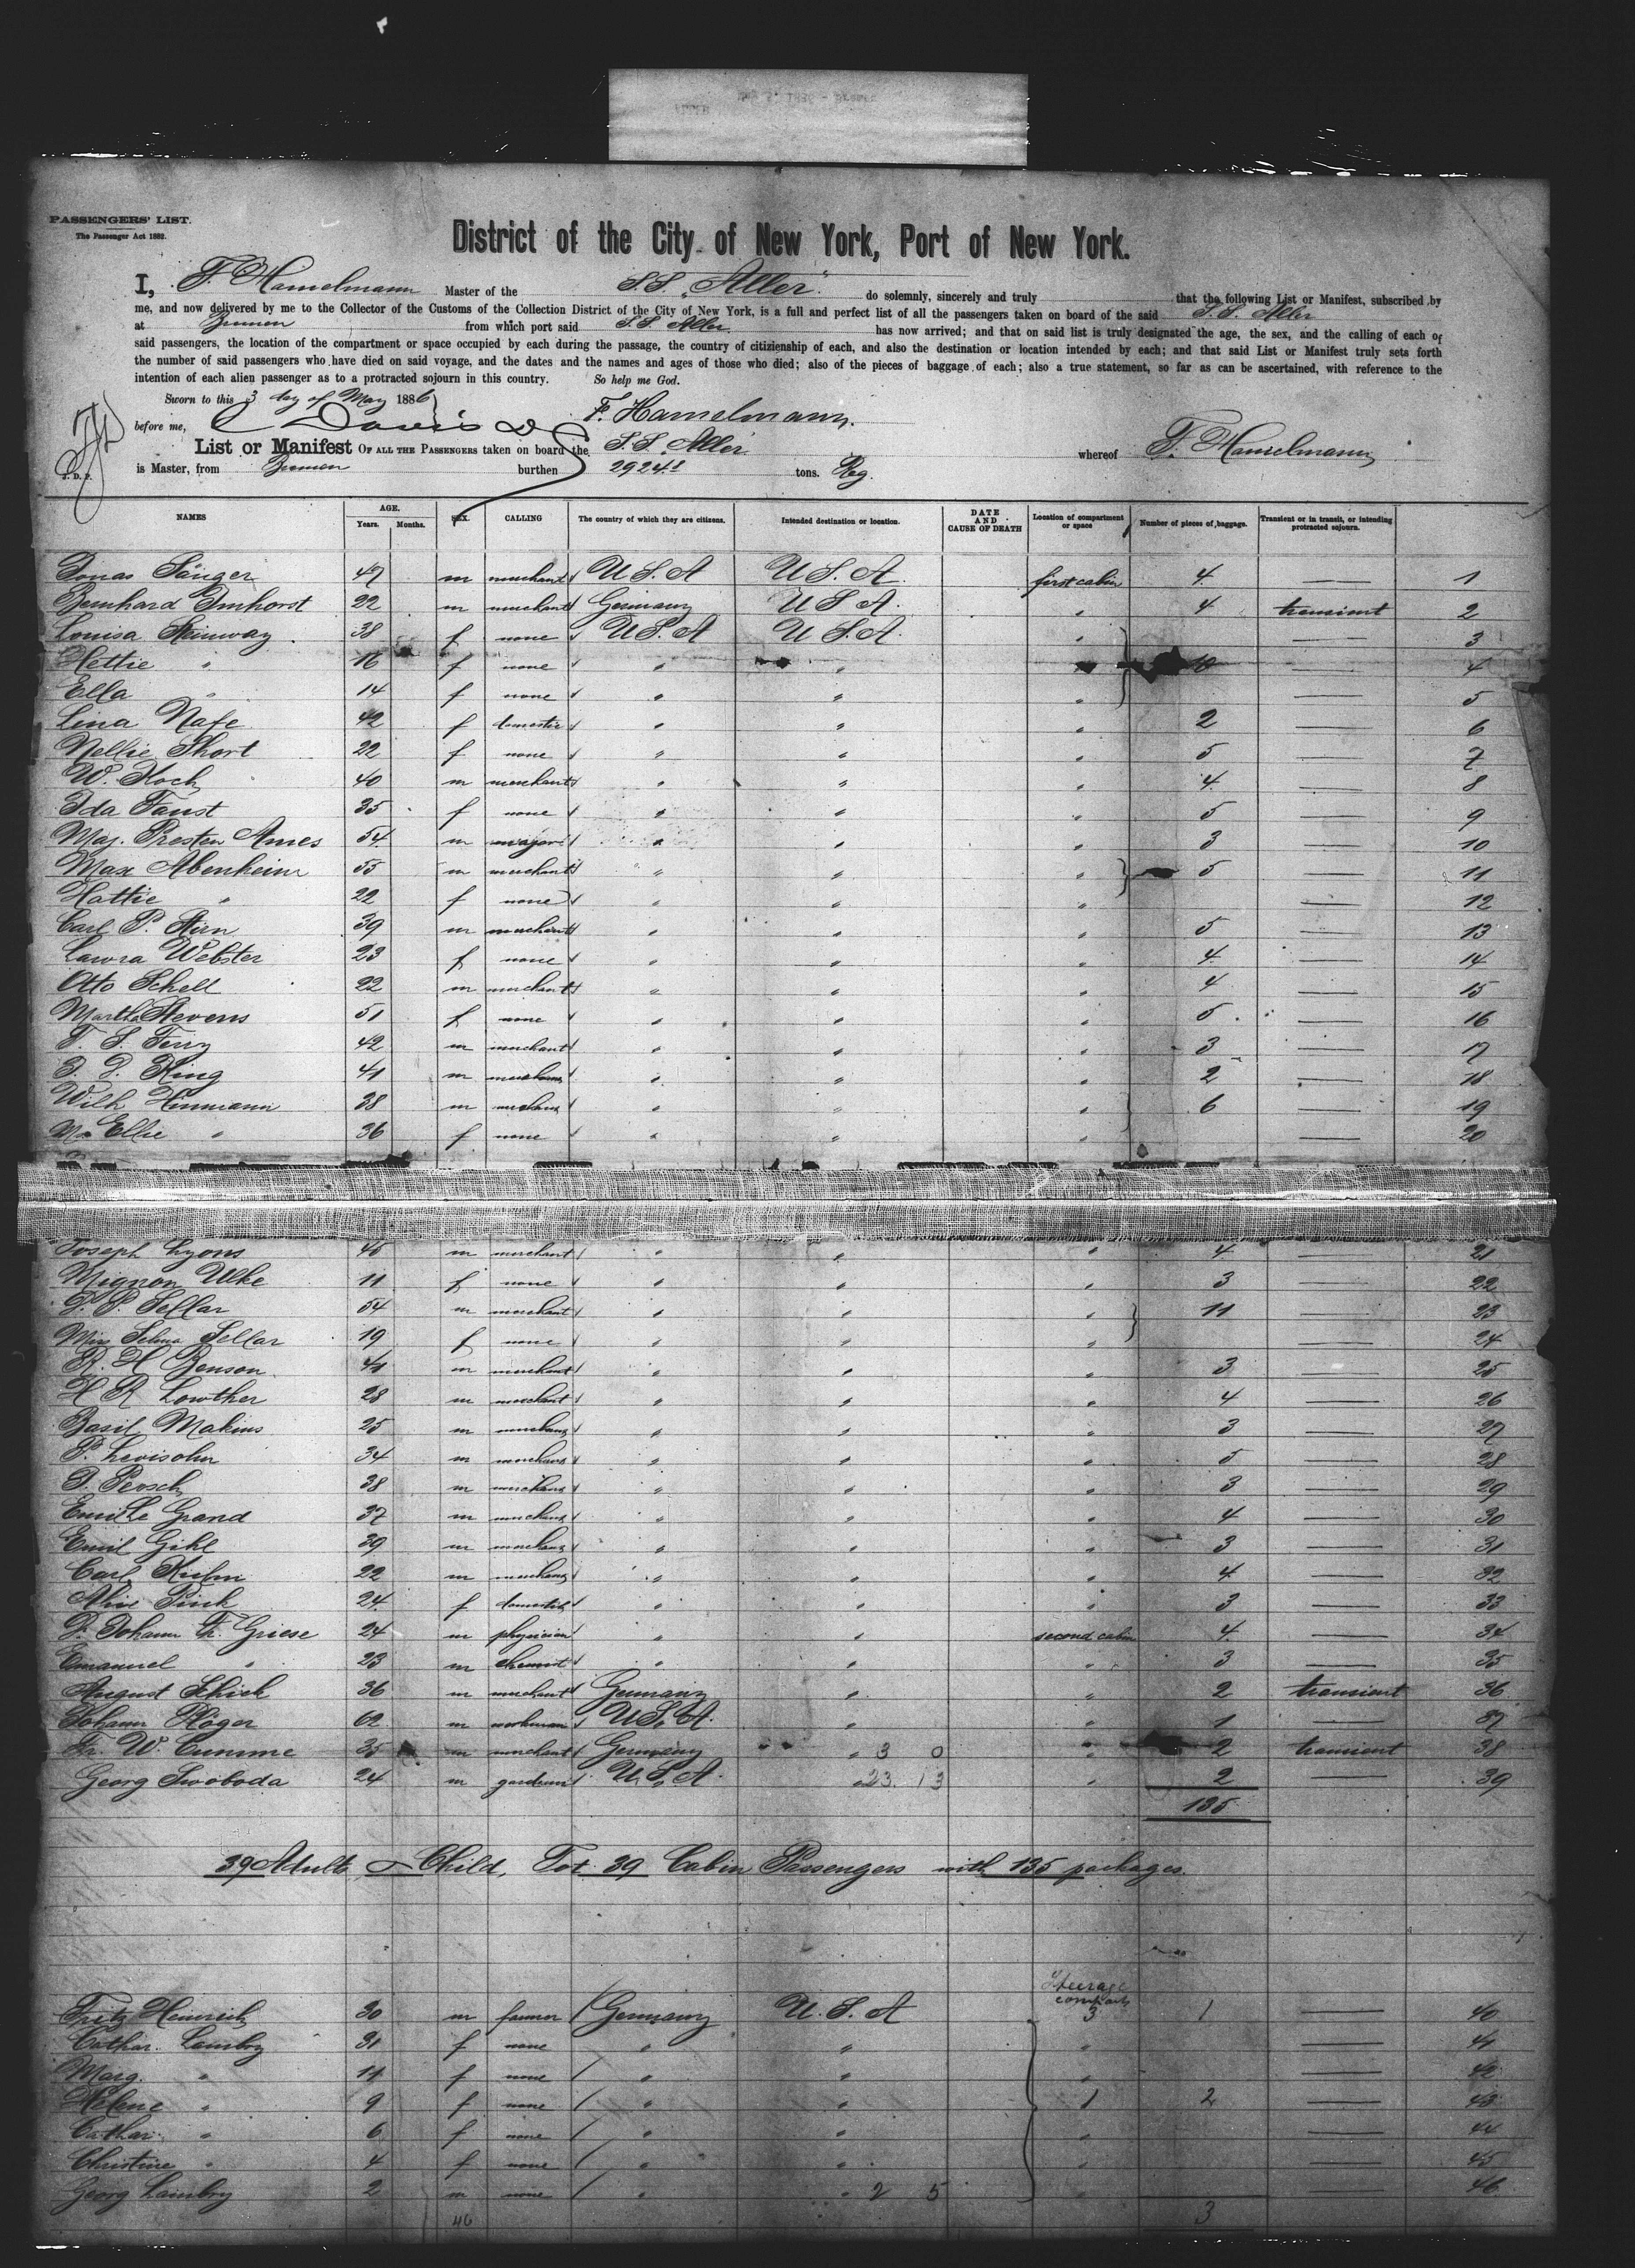 PASSENGERS' LIST.
The Passenger Act 1882.
District of the City of New York, Port of New York.
I, F. Hamelmann Master of the S.S. „Aller" do solemnly, sincerely and truly that the following List or Manifest, subscribed by
me, and now delivered by me to the Collector of the Customs of the Collection District of the City of New York, is a full and perfect list of all the passengers taken on board of the said S.S. Aller
at Bremen from which port said S.S. Aller has now arrived; and that on said list is truly designated the age, the sex, and the calling of each of
said passengers, the location of the compartment or space occupied by each during the passage, the country of citizienship of each, and also the destination or location intended by each; and that said List or Manifest truly sets forth
the number of said passengers who have died on said voyage, and the dates and the names and ages of those who died; also of the pieces of baggage of each; also a true statement, so far as can be ascertained, with reference to the
intention of each alien passenger as to a protracted sojourn in this country. So help me God.
Sworn to this 3 day of May 1886
before me, C Davis F. Hamelmann.
List or Manifest OF ALL THE PASSENGERS taken on board the S.S. Aller whereof F. Hamelmann
is Master, from Bremen burthen 2924 tons. Reg.
NAMES AGE. Years. Months. SEX. CALLING The country of which they are citizens. Intended destination or location. DATE AND CAUSE OF DEATH Location of compartment or space Number of pieces of baggage. Transient or in transit, or intending protracted sojourn.
Jonas Sänger 47 m merchant U S. A U S. A. first cabin 4 — 1
Bernhard Imhorst 22 m merchant Germany U S A. " 4 transient 2
Louisa Steinway 38 f none U S. A U S. A. " — 3
Hettie " 16 f none " " 10 — 4
Ella " 14 f none " " " — 5
Lina Nafe 42 f domestic " " " 2 — 6
Nellie Short 22 f none " " " 5 — 7
W. Koch 40 m merchant " " " 4 — 8
Ida Faust 35 f none " " " 5 — 9
Maj. Presten Ames 54 m major " " " 3 — 10
Max Abenheim 55 m merchant " " " 5 — 11
Hattie " 22 f none " " " — 12
Carl P. Stirn 39 m merchant " " " 5 — 13
Lawra Webster 23 f none " " " 4 — 14
Otto Schell 22 m merchant " " " 4 — 15
Martha Stevens 51 f none " " " 5 — 16
T. S. Terry 42 m merchant " " " 3 — 17
King 41 m merchant " " " 2 — 18
Wilh Hinmann 38 m merchant " " " 6 — 19
Ms Ellie " 36 f none " " " — 20
Joseph Lyons 46 m merchant " " " 4 — 21
Mignon Ulke 11 f none " " " 3 — 22
Sellar 54 m merchant " " " 11 — 23
Miss Selma Sellar 19 f none " " " — 24
R. H Benson 41 m merchant " " " 3 — 25
H R Lowther 28 m merchant " " " 4 — 26
Basil Makins 25 m merchant " " " 3 — 27
P. Levisohn 34 m merchant " " " 5 — 28
Persch 38 m merchant " " " 3 — 29
Emile Grand 37 m merchant " " " 4 — 30
Emil Gihl 39 m merchant " " " 3 — 31
Carl Kuhn 22 m merchant " " " 4 — 32
Alive Pink 24 f domestic " " " 3 — 33
Dr Johann Fr. Griese 24 m physician " " second cabin 4 — 34
Emanuel " 23 m chemist " " " 3 — 35
August Schick 36 m merchant Germany " " 2 transient 36
Johann Plöger 62 m workman U S. A. " " 1 — 37
Fr. W. Cumme 35 m merchant Germany " 3 0 " 2 transient 38
Georg Swoboda 24 m gardener U. S. A. " 23. 13 " 2 — 39
135
39 Adults, — Child, Tot. 39 Cabin Passengers with 135 packages.
Steerage
Fritz Heinrich 30 m farmer Germany U. S. A 3 1 — 40
Cathar. Lambry 31 f none " " " — 41
Marg. " 11 f none " " " — 42
Helene " 9 f none " " 1 2 — 43
Cathar. " 6 f none " " " — 44
Christine " 4 f none " " " — 45
Georg Lambry 2 m none " " 2 5 " — 46
46 3